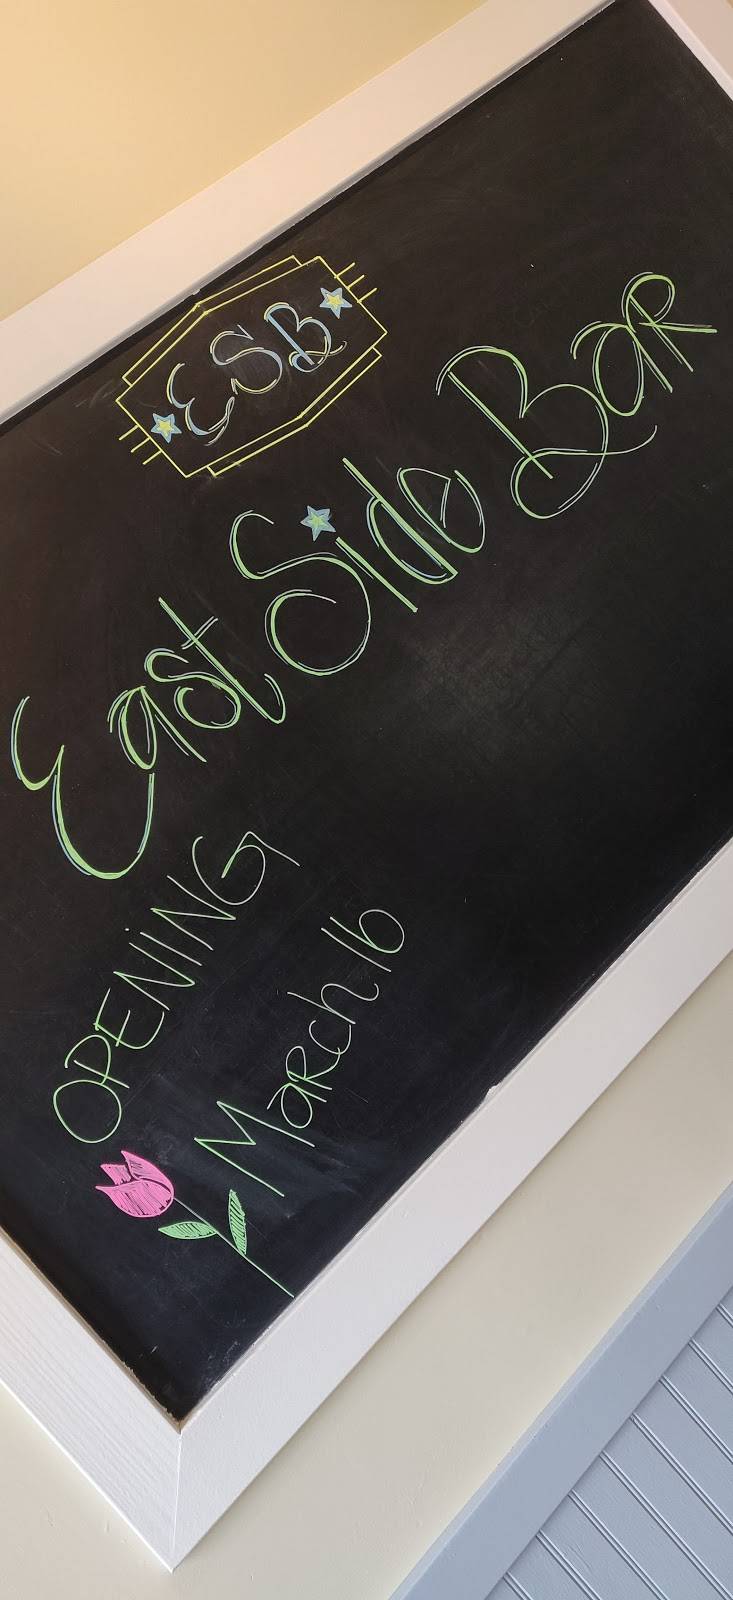 ESB
East Side Bar
OPENiNG
March 16